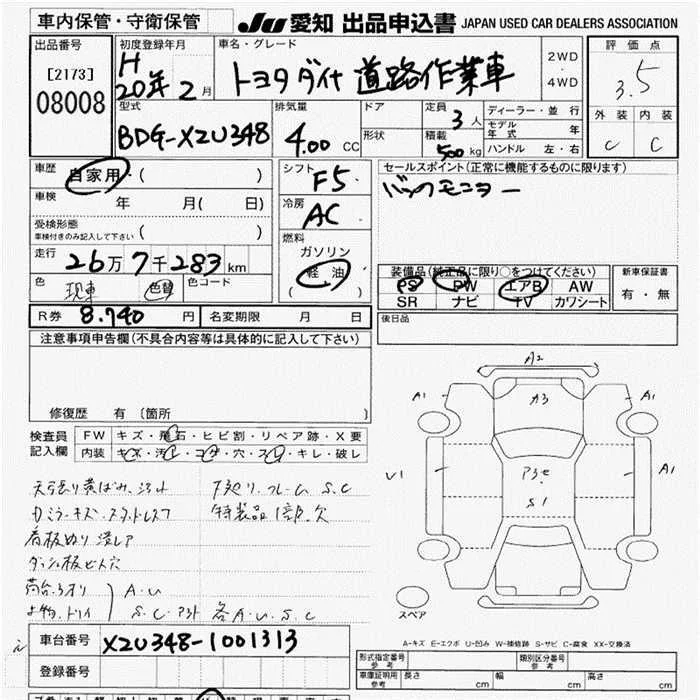 車内保管・守衛保管
JU 愛知 出品申込書 JAPAN USED CAR DEALERS ASSOCIATION
出品番号
[2173]
08008
初度登録年月
H
20年 2月
車名・グレード
トヨタダイナ 道路作業車
2WD
・
4WD
評価点
3.5
外装 内装
C C
型式
BDG-XZU348
排気量
4.00 CC
ドア
形状
定員 3人
積載 500 kg
ディーラー・並行
モデル年式 年
ハンドル 左・右
車歴 自家用・( )
車検 年 月( 日)
受検形態
車検付きのみ記入して下さい ( )
走行 26万7千283km
色 現車 色替 色コード
シフト F5
冷房 AC
燃料
ガソリン
軽油
( )
セールスポイント(正常に機能するものに限ります)
バックモニター
装備品(純正品に限り○をつけてください)
PS PW エアB AW
SR ナビ TV カワシート
新車保証書
有・無
R券 8.740 円 名変期限 月 日
後日品
注意事項申告欄(不具合内容等は具体的に記入して下さい)
修復歴 有 〔箇所 〕
検査員記入欄
FW キズ・飛石・ヒビ割・リペア跡・X要
内装 キズ・汚レ・コゲ・穴・スレ・キレ・破レ
天張り黄ばみ、ヨゴレ
下廻り、フレーム S.C
特装品1部欠
看板ぬり潰し
ダッシュ板ビス穴
A.U
S.C 各A.U.S.C
A2
A1 A3 A1
U1 A1
S1
スペア
A-キズ E-エクボ U-凹み W-補修跡 S-サビ C-腐食 XX-交換済
車台番号 XZU348-1001313
登録番号
形式指定番号 参考
類別区分番号 参考
車庫証明用 参考 長さ cm 幅 cm 高さ cm